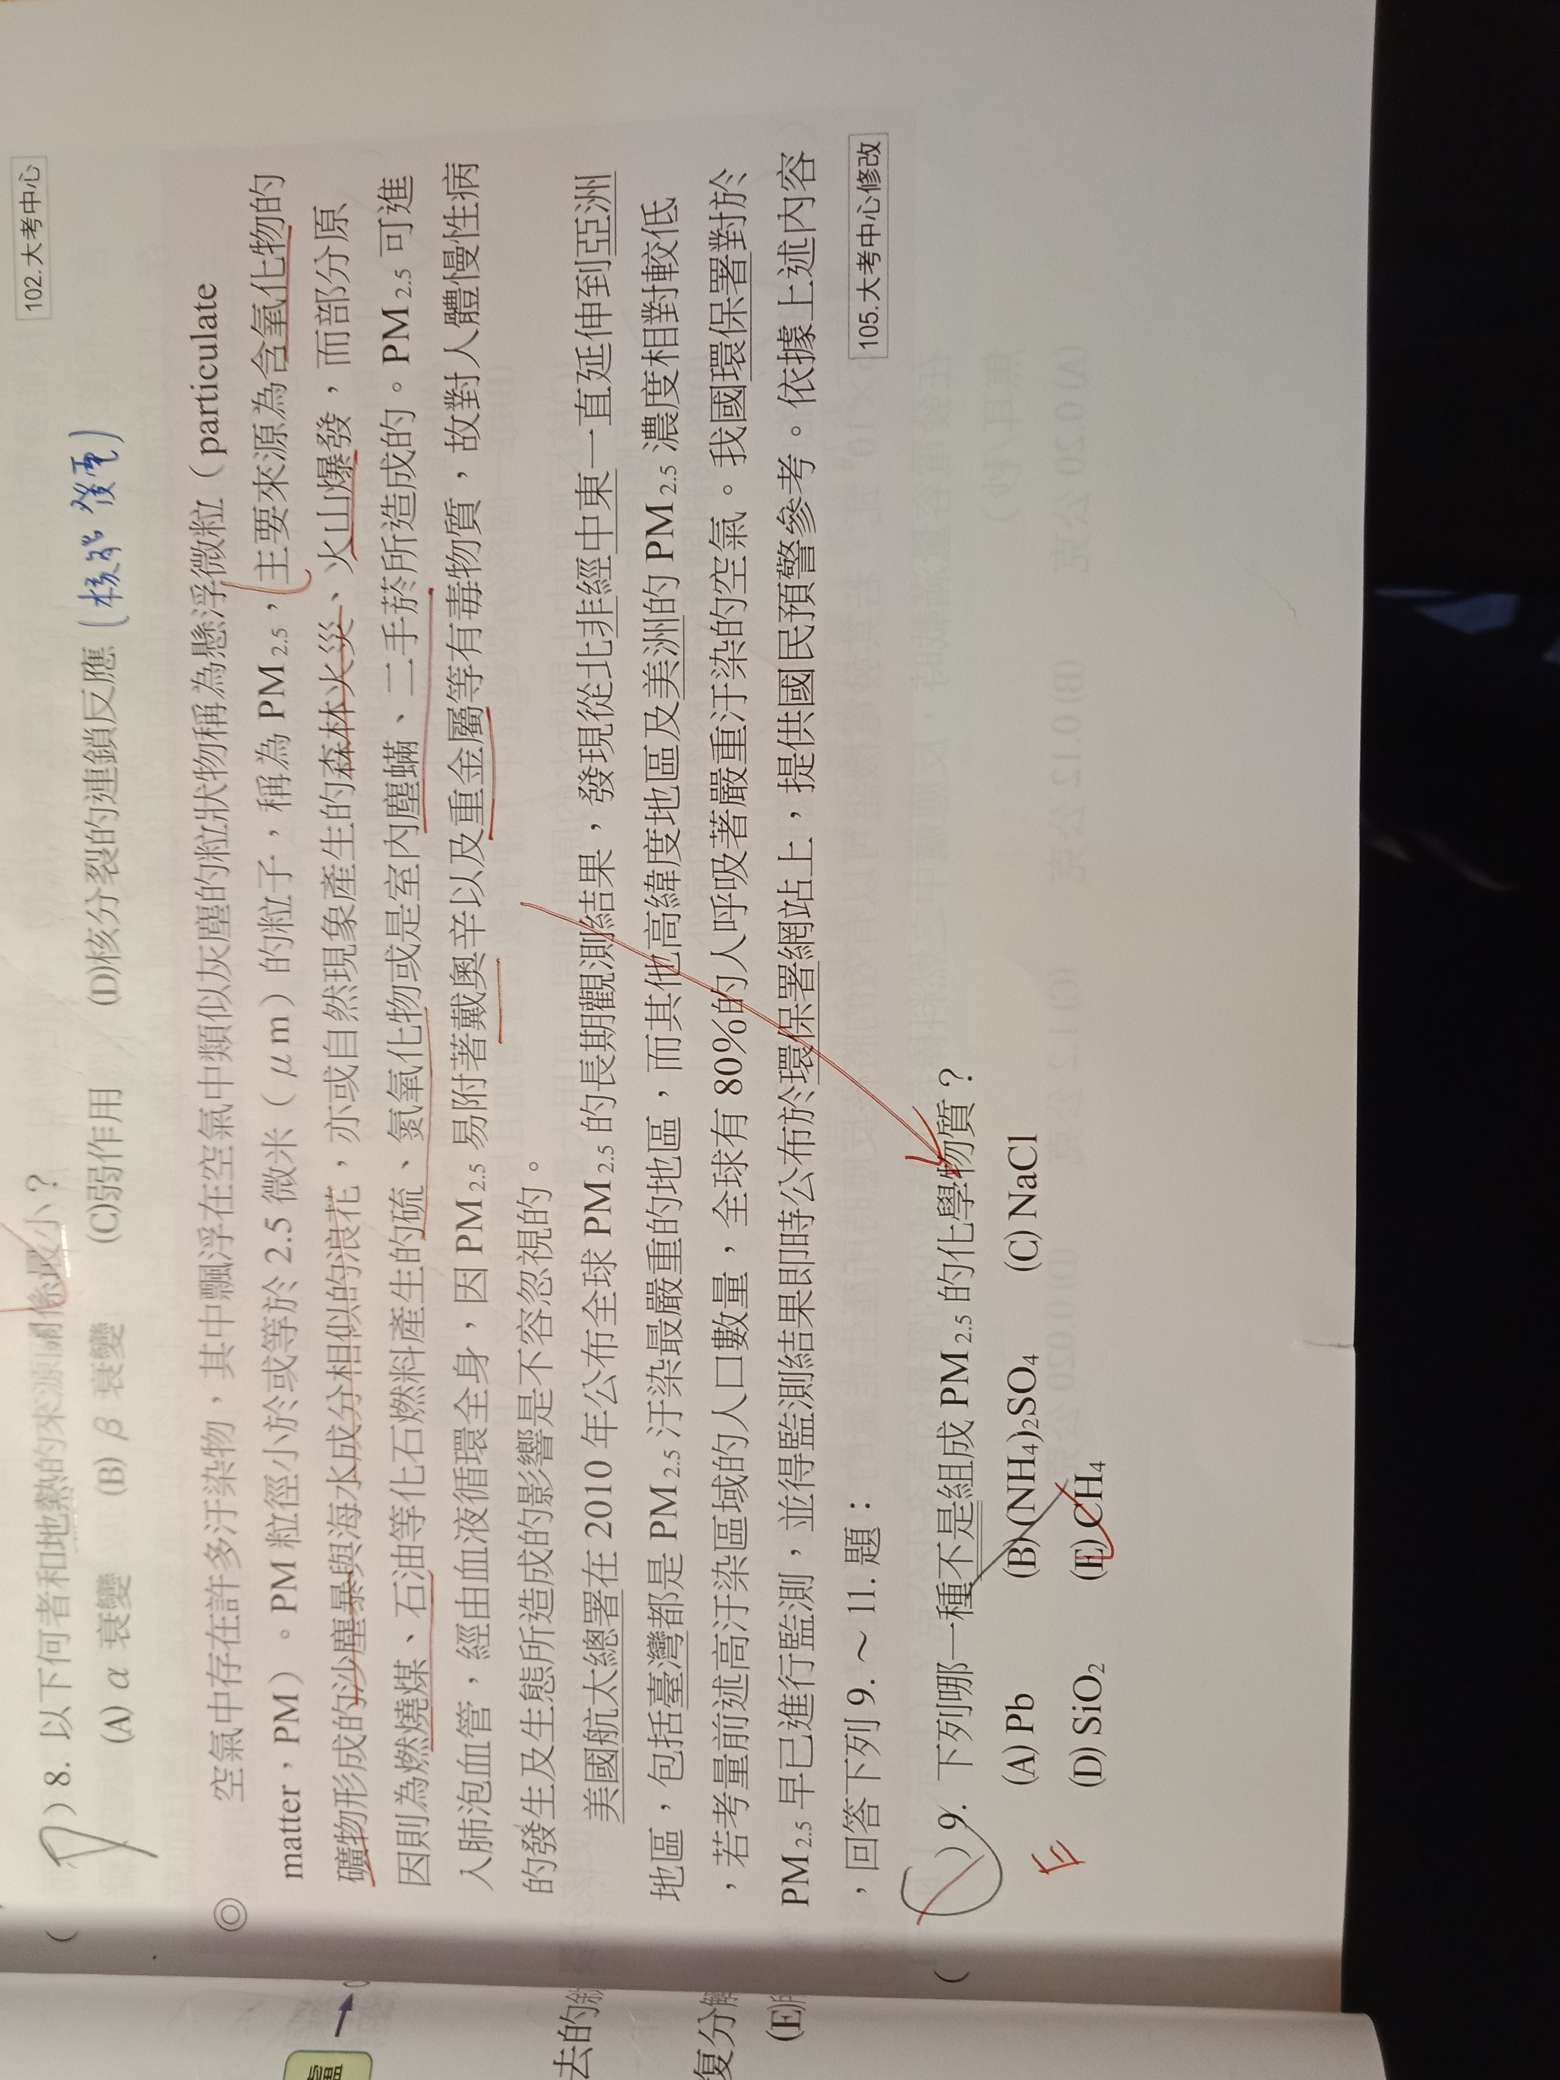 102.大考中心
) 8. 以下何者和地熱的來源關係最小？
(A) α 衰變 (B) β 衰變 (C)弱作用 (D)核分裂的連鎖反應 (核能發電)
◎ 空氣中存在許多汙染物，其中飄浮在空氣中類似以灰塵的粒狀物稱為懸浮微粒（particulate
matter，PM）。PM 粒徑小於或等於 2.5 微米（μm）的粒子，稱為 PM2.5，主要來源為含氧化物的
礦物形成的沙塵暴與海水成分相似的浪花，亦或自然現象產生的森林火災、火山爆發，而部分原
因則為燃燒煤、石油等化石燃料產生的硫、氮氧化物或是室內塵蟎、二手菸所造成的。PM2.5 可進
入肺泡血管，經由血液循環全身，因 PM2.5 易附著戴奧辛以及重金屬等有毒物質，故對人體慢性病
的發生及生態所造成的影響是不容忽視的。
美國航太總署在 2010 年公布全球 PM2.5 的長期觀測結果，發現從北非經中東一直延伸到亞洲
地區，包括臺灣都是 PM2.5 汙染最嚴重的地區，而其他高緯度地區及美洲的 PM2.5 濃度相對較低
，若考量前述高汙染區域的人口數量，全球有 80%的人呼吸著嚴重汙染的空氣。我國環保署對於
PM2.5 早已進行監測，並得監測結果即時公布於環保署網站上，提供國民預警參考。依據上述內容
，回答下列 9.～11.題：
105.大考中心修改
( ) 9. 下列哪一種不是組成 PM2.5 的化學物質？
E
(A) Pb (B) (NH4)2SO4 (C) NaCl
(D) SiO2 (E) CH4
去的
復分解
(E)